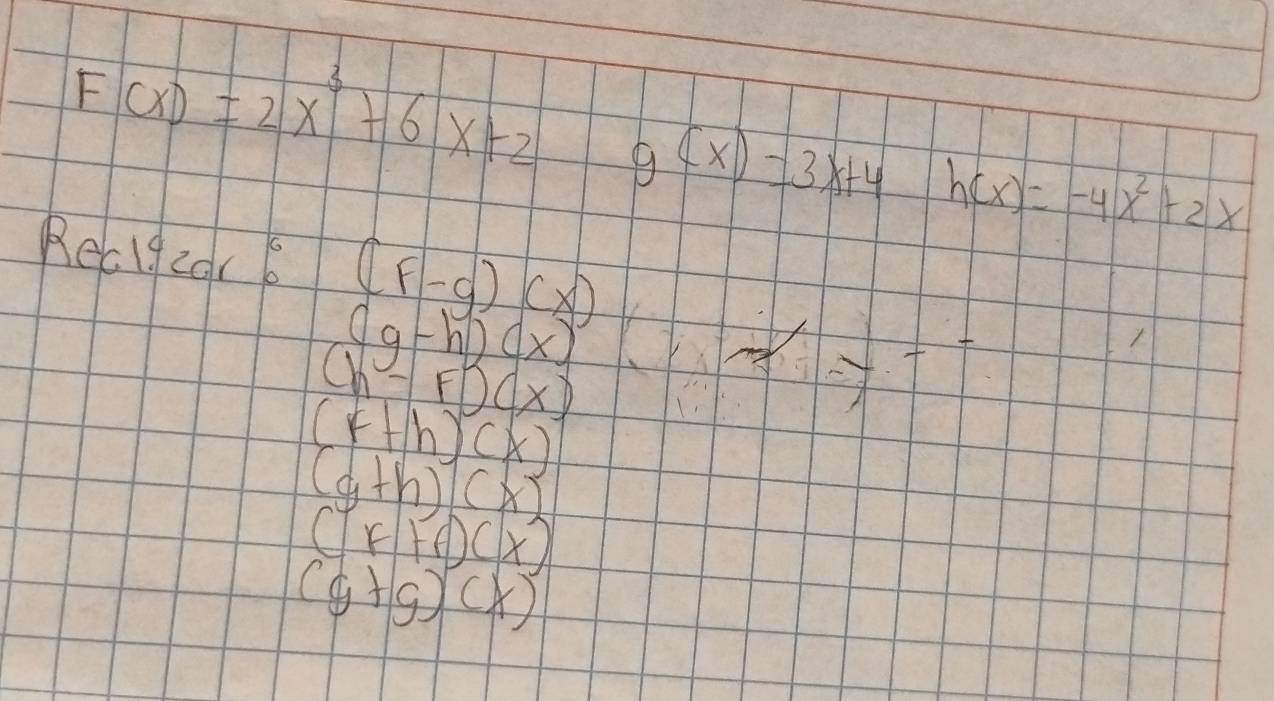 F(x) = 2x³ + 6x + 2 g(x) = 3x+4 h(x) = -4x² + 2x
Realizar: (F-g)(x)
(g-h)(x)
(h-F)(x)
(F+h)(x)
(g+h)(x)
(F+F)(x)
(g+g)(x)